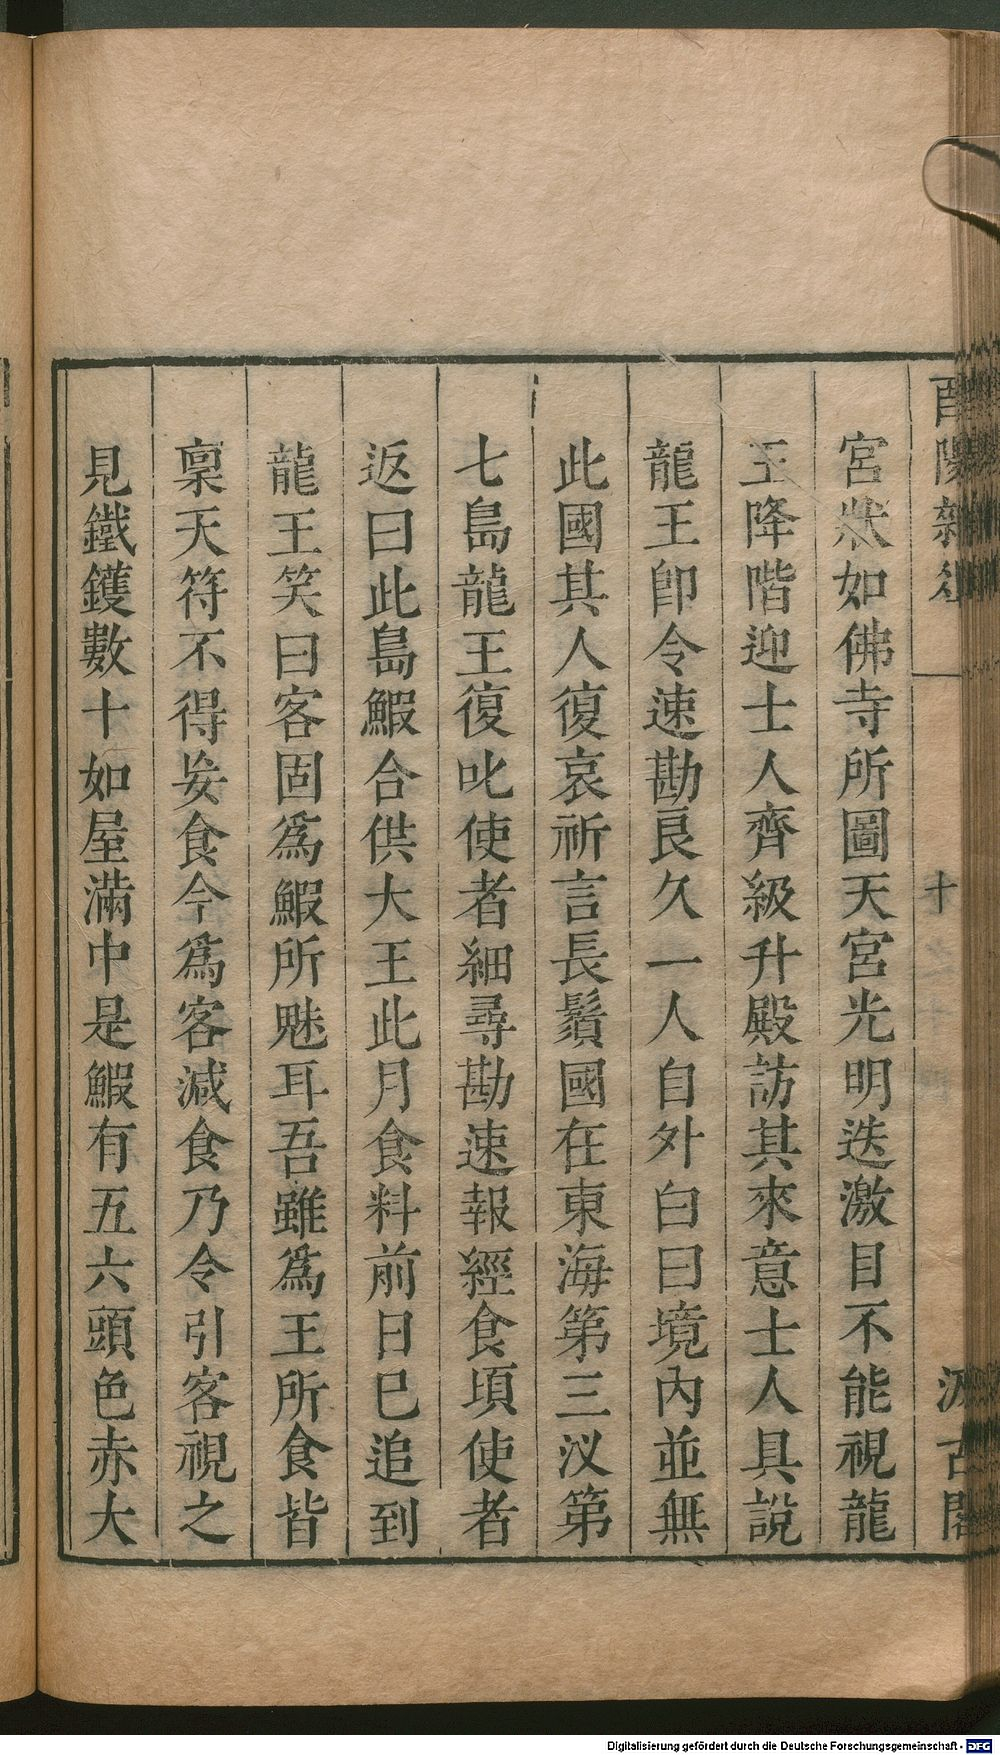 酉陽雜
十
汲古閣
宮狀如佛寺所圖天宮光明迭激目不能視龍
王降階迎士人齊級升殿訪其來意士人具說
龍王卽令速勘良久一人自外白曰境內並無
此國其人復哀祈言長鬚國在東海第三汊第
七島龍王復叱使者細尋勘速報經食頃使者
返曰此島鰕合供大王此月食料前日已追到
龍王笑曰客固爲鰕所魅耳吾雖爲王所食皆
稟天符不得妄食今爲客減食乃令引客視之
見鐵鑊數十如屋滿中是鰕有五六頭色赤大
Digitalisierung gefördert durch die Deutsche Forschungsgemeinschaft - DFG